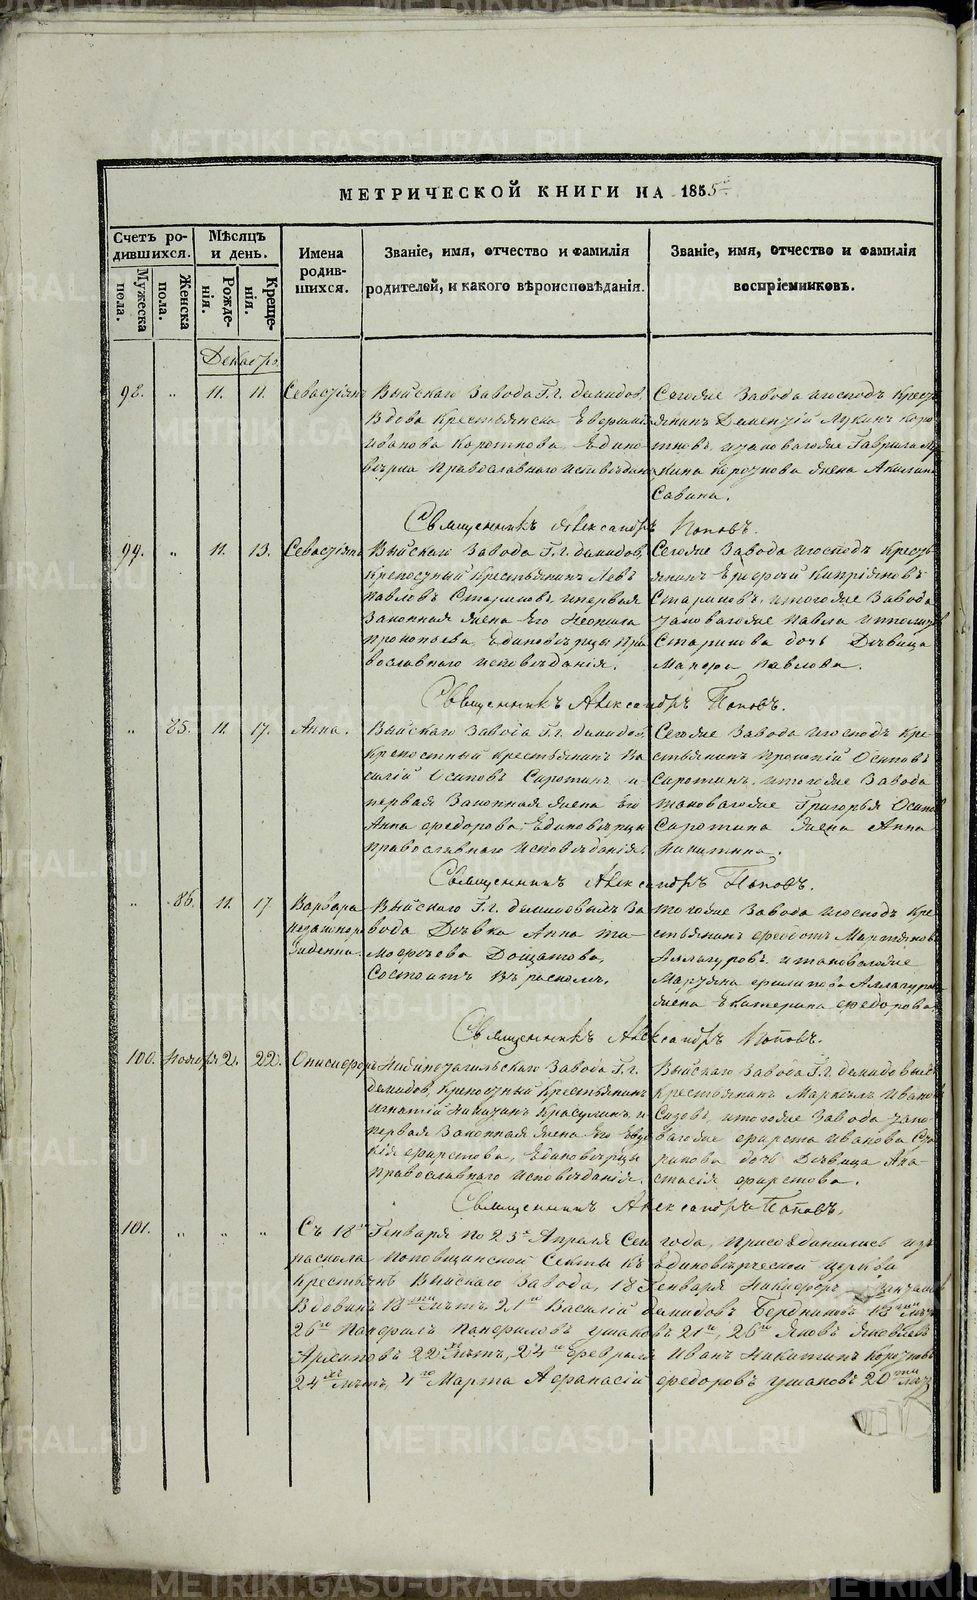 МЕТРИЧЕСКОЙ КНИГИ НА 1855
Счетъ ро-
дившихся.
Мужеска
пола.
Женска
пола.
Мѣсяцъ
и день.
Рожде-
нія.
Креще-
нія.
Имена
родив-
шихся.
Званіе, имя, отчество и фамилія
родителей, и какого вѣроисповѣданія.
Званіе, имя, отчество и фамилія
воспріемниковъ.
Декабрь
98. " 11. 11. Севастіянъ
Выйскаго Завода Г.г. демидов.
Вдова Крестьянска
Иванова Короткова Едино
вѣрца Православнаго исповѣдан
Сегоже Завода игосподъ Крест
янинъ Лукинъ Коро
Гаврила
жена Акилина
Савина.
Священникъ Александръ Поповъ.
99. " 11. 13. Севастіянъ
Выйскаго Завода Г.г. демидов,
крепостный крестьянинъ Левъ
павловъ Стариковъ, ипервая
Законная жена Его Неонила
прокопьева, Единовѣрцы Пра
вославнаго исповѣданія.
Сегоже Завода игосподъ Кресть
янинъ Ерофей Кипріяновъ
Стариковъ, итогоже Завода
Павла
Старикова дочь Дѣвица
павлова.
Священникъ Александръ Поповъ.
" 85. 11. 17. Анна.
Выйскаго Завода Г.г. демидов,
Крепостный крестьянинъ Ва
силій Осиповъ Сиротинъ и
первая Законная жена Его
Анна федорова, Единовѣрцы
православнаго исповѣданія.
Сегоже Завода игосподъ Кре
стьянинъ Осиповъ
Сиротинъ, итогоже Завода
таковагоже Григорья Осипов
Сиротина жена Анна
Никитина.
Священникъ Александръ Поповъ.
" 86. 11. 17 Варвара
незаконо
рожденна
Выйскаго Г.г. демидовыхъ За
вода Дѣвка Анна ти
мофеева
Состоитъ въ расколѣ.
тогоже Завода игосподъ Кре
стьянинъ федотъ Мартяновъ
итаковагоже
филипова
жена Екатерина федорова.
Священникъ Александръ Поповъ.
100. Ноября 2. 22. Онисифоръ
Нижнетагильскаго Завода Г.г.
демидов, крепостный Крестьянинъ
игнатій Никитинъ Красулинъ, и
первая Законная жена Его Евдо
кія фирсова, Единовѣрцы
Православнаго исповѣданія.
Выйскаго Завода Г.г. демидовыхъ
крестьянинъ Маркелъ Иванов
Сизовъ, итогоже Завода тако
вагоже фирса Иванова
дочь Дѣвица Ана
стасія фирсова.
Священникъ Александръ Поповъ.
101. " " " Съ 18го Генваря по 25е Апреля Сего года, присоединились изъ
раскола поповщинской Секты къ Единовѣрческой церкви
крестьянъ Выйскаго Завода, 18 Генваря Никифоръ
Вдовинъ 18ти лѣтъ, 21го Василій демидовъ Бердниковъ 18ти лѣтъ
26го Панфилъ Панфиловъ ушаковъ 21го, 26го Яковъ Яковлевъ
22хъ лѣтъ, 24го февраля Иванъ Никитинъ
24хъ лѣтъ, 4го Марта Афанасій федоровъ ушаковъ 20ти лѣт